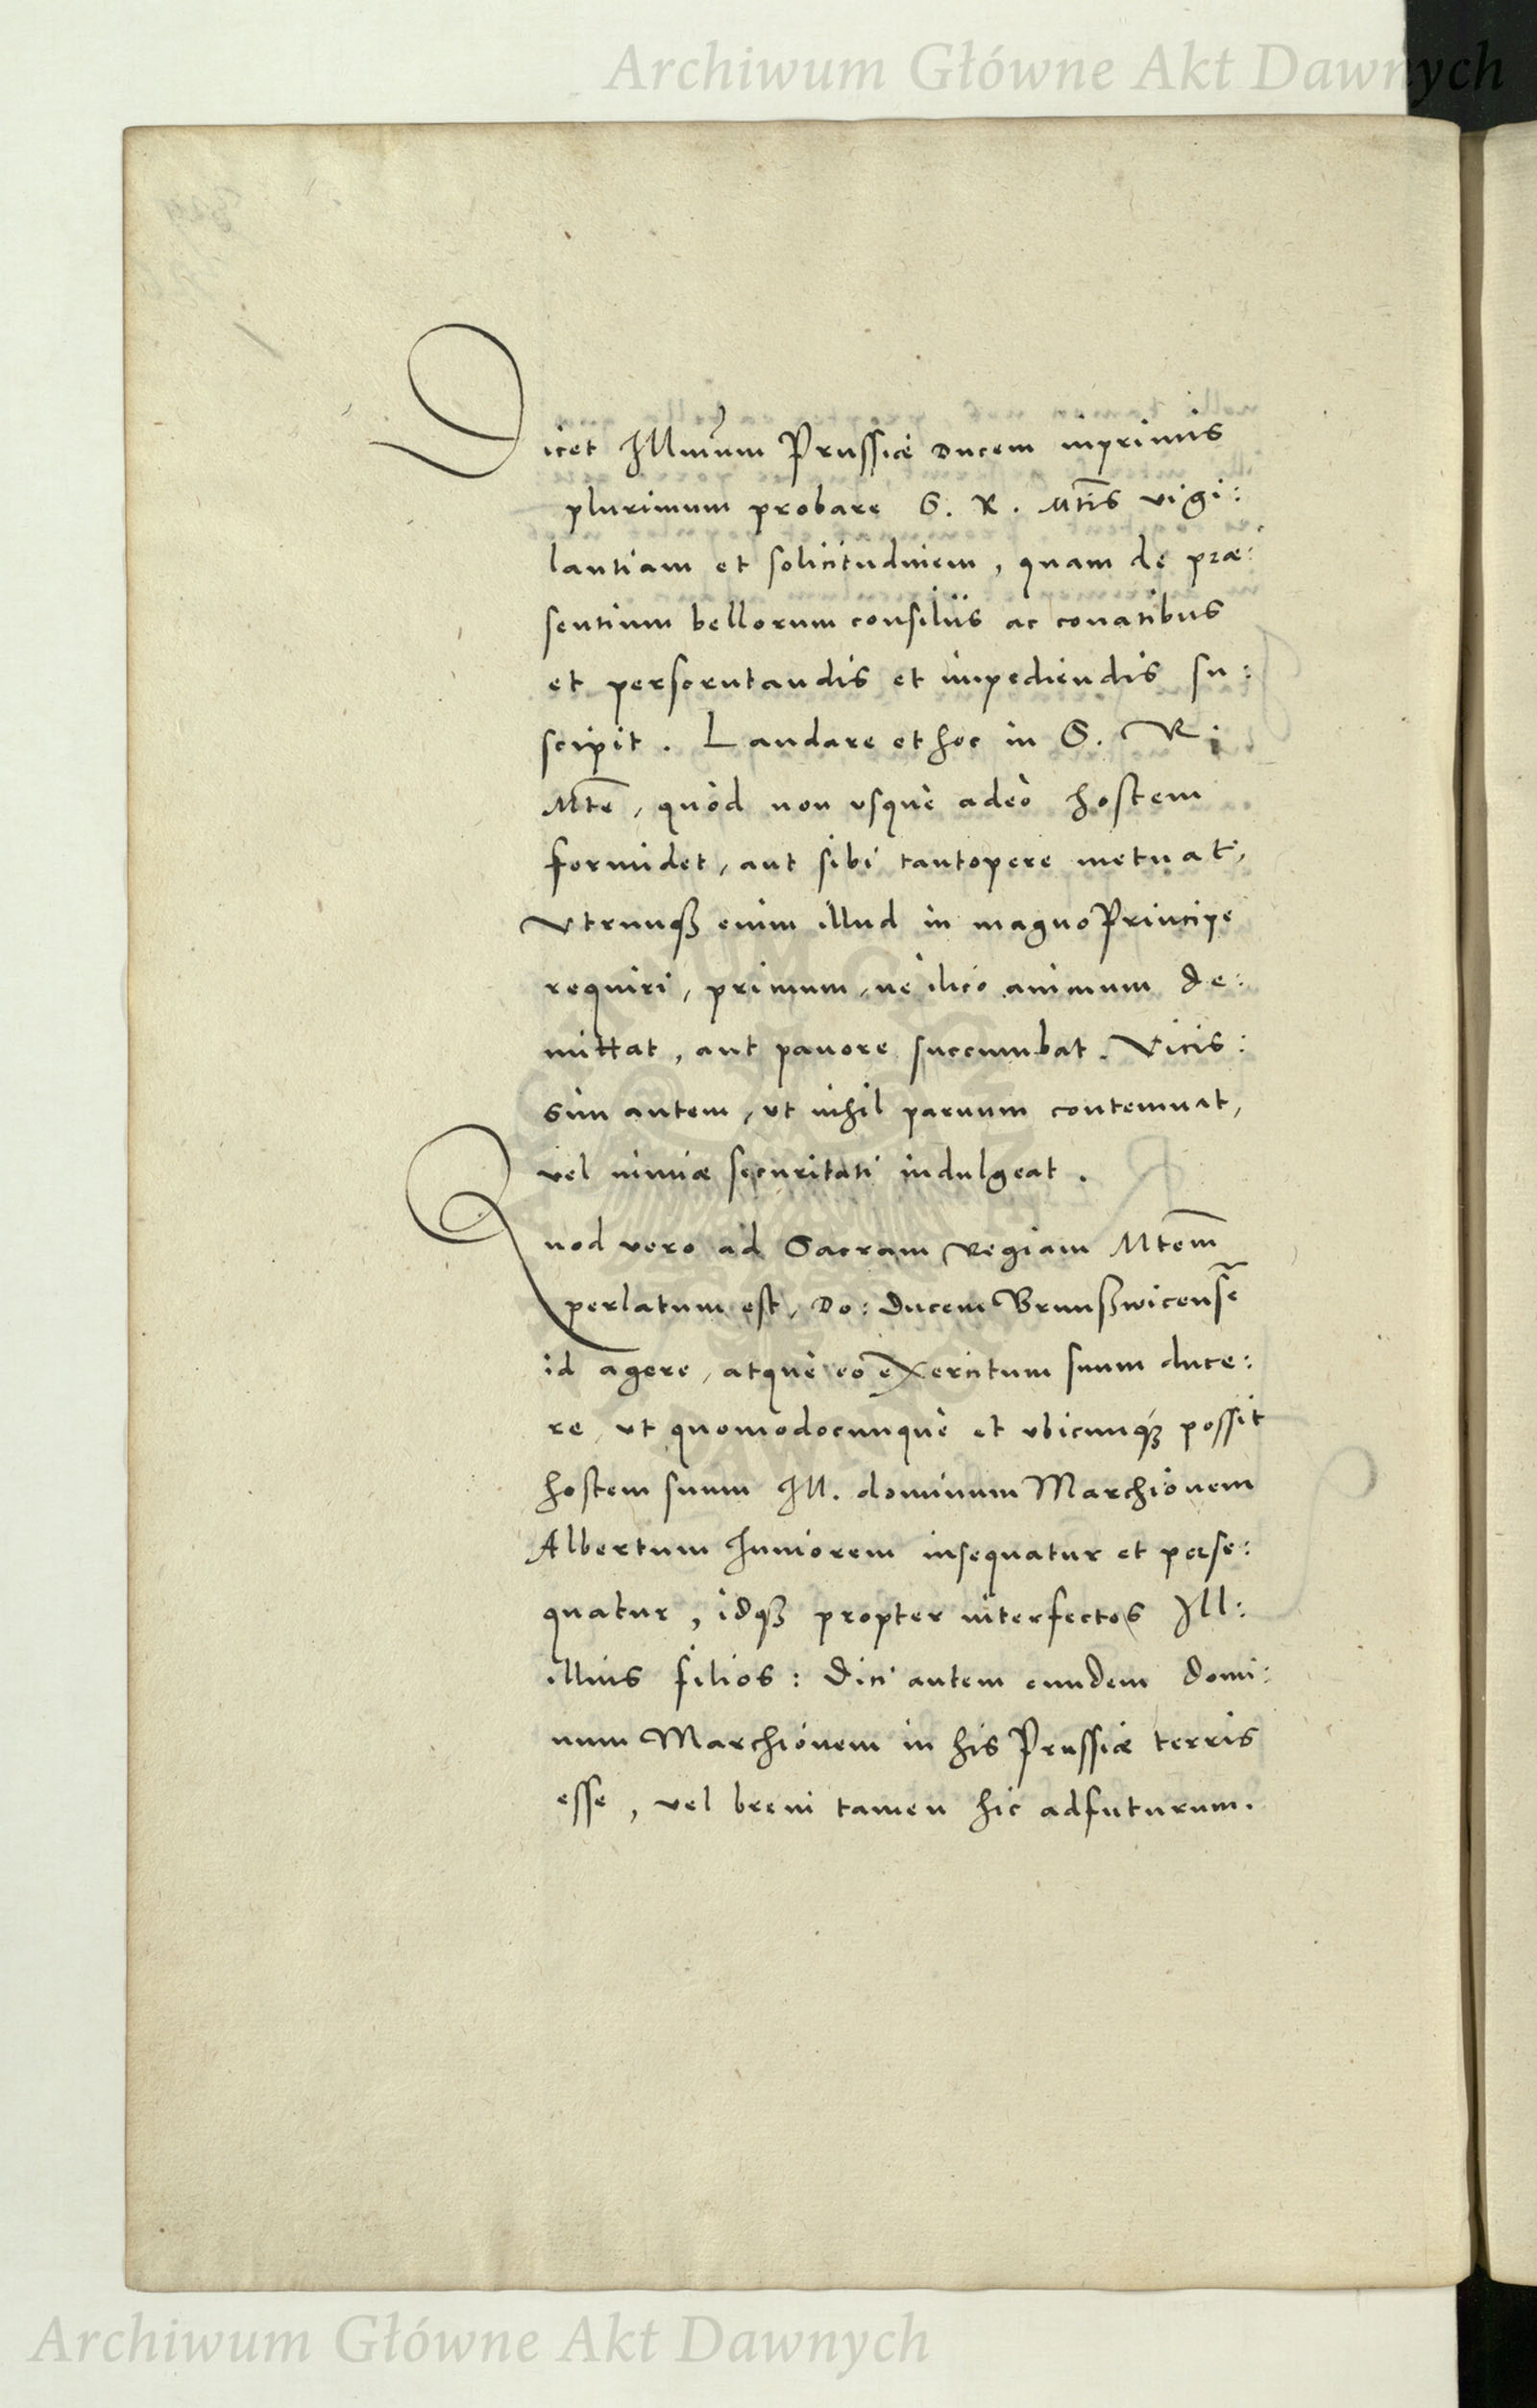 Archiwum Główne Akt Dawnych
Dicet Illmum Prussiæ Ducem inprimis
plurimum probare S. R. Mtis vigi:
lantiam et solicitudinem, quam de præ:
sentium bellorum consiliis ac conatibus
et perscrutandis et impediendis su:
scipit. Laudare et hoc in S. R.
Mte, quòd non usquè adeò hostem
formidet, aut sibi tantopere metuat,
Vtrunqȝ enim illud in magno Principe
requiri, primum, nè ilicò animum de:
mittat, aut pauore succumbat. Vicis:
sim autem, vt nihil paruum contemnat,
vel nimiæ securitati indulgeat.
Quod vero ad Sacram Regiam Mtem
perlatum est, Do: Ducem Brunßwicense
id agere, atquè eò exercitum suum duce:
re, vt quomodocunquè et vbicunqȝ possit
hostem suum Ill. dominum Marchionem
Albertum Iuniorem insequatur et perse:
quatur, idqȝ propter interfectos Ill:
illius filios: Dici autem eundem domi:
num Marchionem in his Prussiæ terris
esse, vel breui tamen hic adfuturum.
Archiwum Główne Akt Dawnych